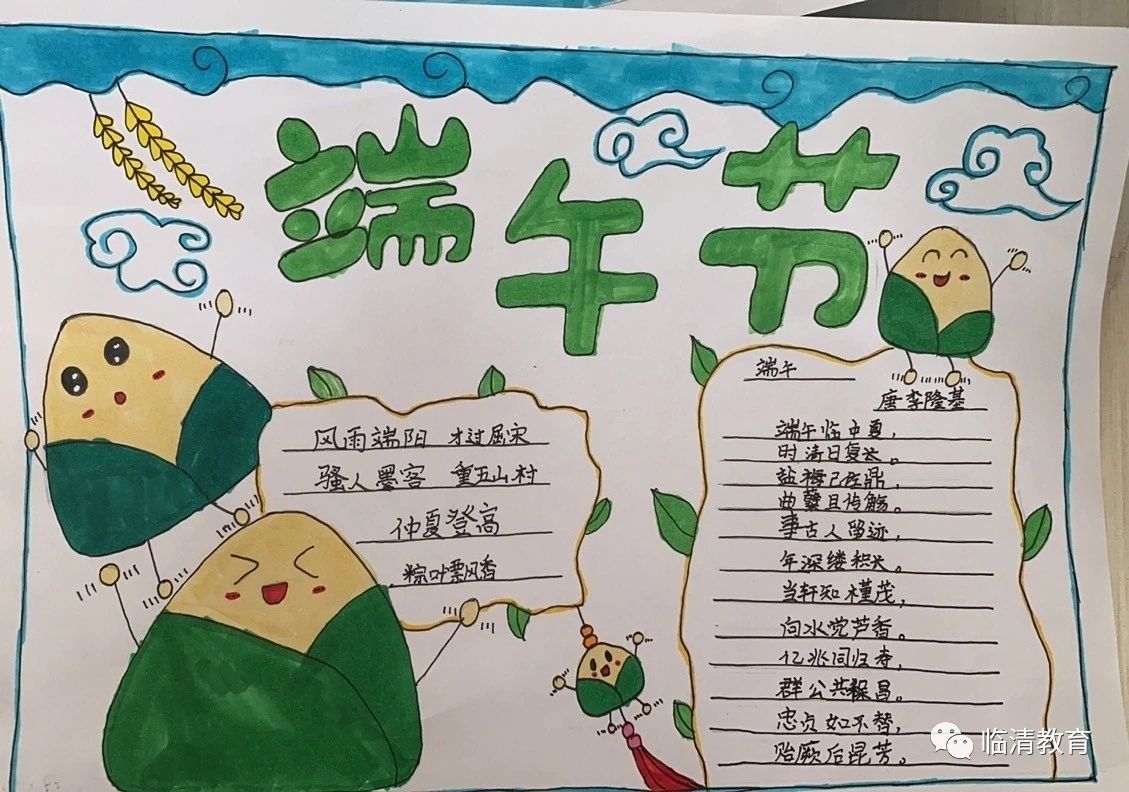 端午节
风雨端阳 才过屈宋
骚人墨客 重五山村
仲夏登高
粽叶飘香
端午
唐李隆基
端午临中夏，
时清日复长。
盐梅已佐鼎，
曲糵且传觞。
事古人留迹，
年深缕积长。
当轩知槿茂，
向水觉芦香。
亿兆同归寿，
群公共保昌。
忠贞如不替，
贻厥后昆芳。
临清教育